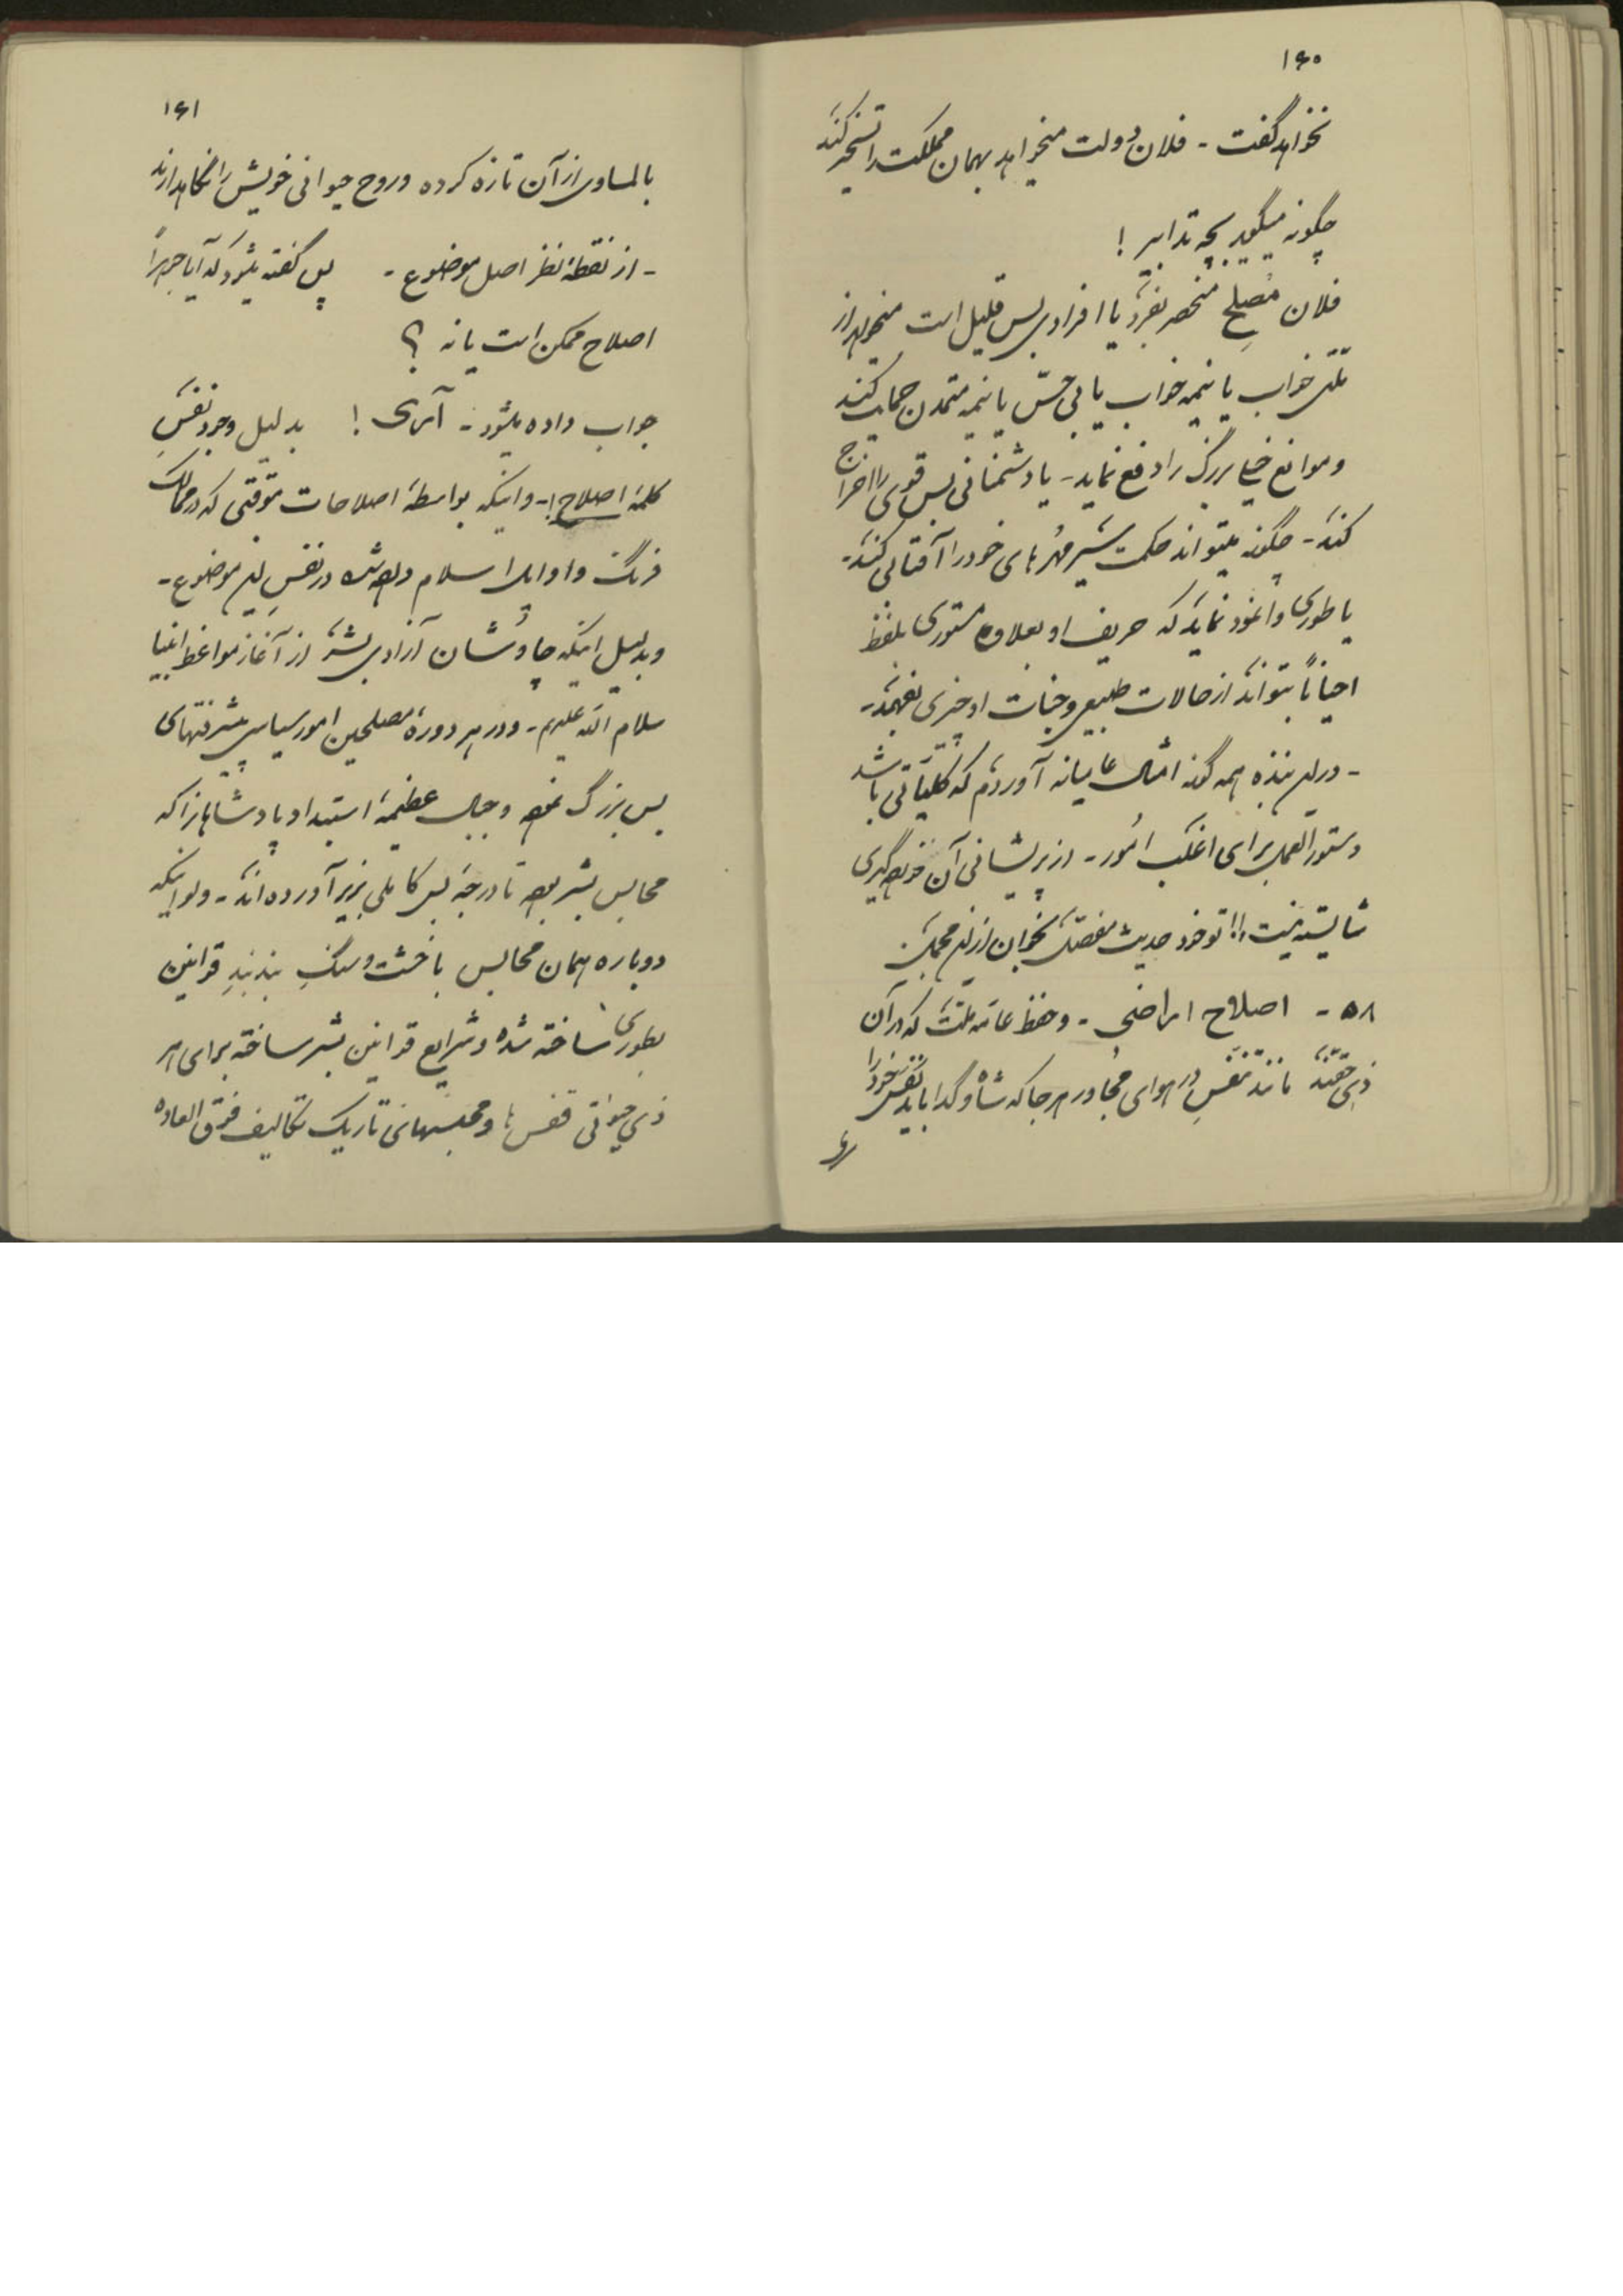 ۱۶۰
نخواهد گفت - فلان دولت میخواهد بهمان مملکت را تسخیر کند
چگونه میگوید بچه تدابیر !
فلان مُصلح منحصر بفرد یا افرادی بس قلیل است میخواهد از
ملتی خواب یا نیمه خواب یا بی حسّ یا نیمه متمدن حمایت کند
و موانع خیلی بزرگ را دفع نماید - یا دشمنانی بس قوی را اخراج
کند - چگونه میتواند حکمت سَیر مهره های خود را آفتابی کند -
یا طوری وانمود نماید که حریف او بعلاوه مستوری بلفظ
احیاناً بتواند از حالات طبیعی و جنات او چیزی بفهمد -
- در این نبذه همه گونه امثال عامیانه آوردم که کلیّاتی باشد
دستورالعمل برای اغلب امُور - از پریشانی آن خورده گیری
شایسته نیست !! تو خود حدیث مفصّل بخوان از این مجمل
۵۸ - اصلاح اراضی - و حفظ عامّه ملّت که در آن
ذی حقند مانند تنفسِ در هوای مُجاور هر جا که شاه و گدا باید نفس خود را
۱۶۱
بالمساوی از آن تازه کرده و روح حیوانی خویش را نگاهدارند
- از نقطهٔ نظر اصل موضوع - پس گفته میشود که آیا جبراً
اصلاح ممکن است یا نه ؟
جواب داده میشود - آری ! بدلیل وجود نفسِ
کلمهٔ اصلاح !- و اینکه بواسطهٔ اصلاحات موّقتی که در ممالک
فرنگ و اوایل اسلام داده شده در نفسِ این موضوع -
و بدلیل اینکه چاوُشان آزادی بشر از آغاز مواعظ انبیا
سلام الله علیهم - و در هر دورهٔ مصلحین امور سیاسی پیشرفتهای
بس بزرگ نموده و جبال عظیمهٔ استبداد پادشاهانرا که
محابس بشر بوده تا درجهٔ بس کاملی بزیر آورده اند - ولو اینکه
دوباره همان محابس با خشت و سنگِ بند بندِ قوانین
بطوری ساخته شده و شرایع قوانین بشر ساخته برای هر
ذی حیوتی قفس ها و محبسهای تاریک تکالیف فوق العاده